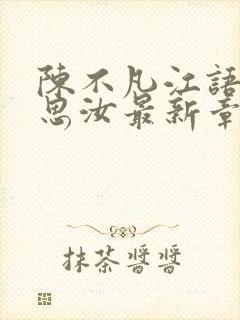 陳不凡江語
思汝最新章
抹茶醬醬